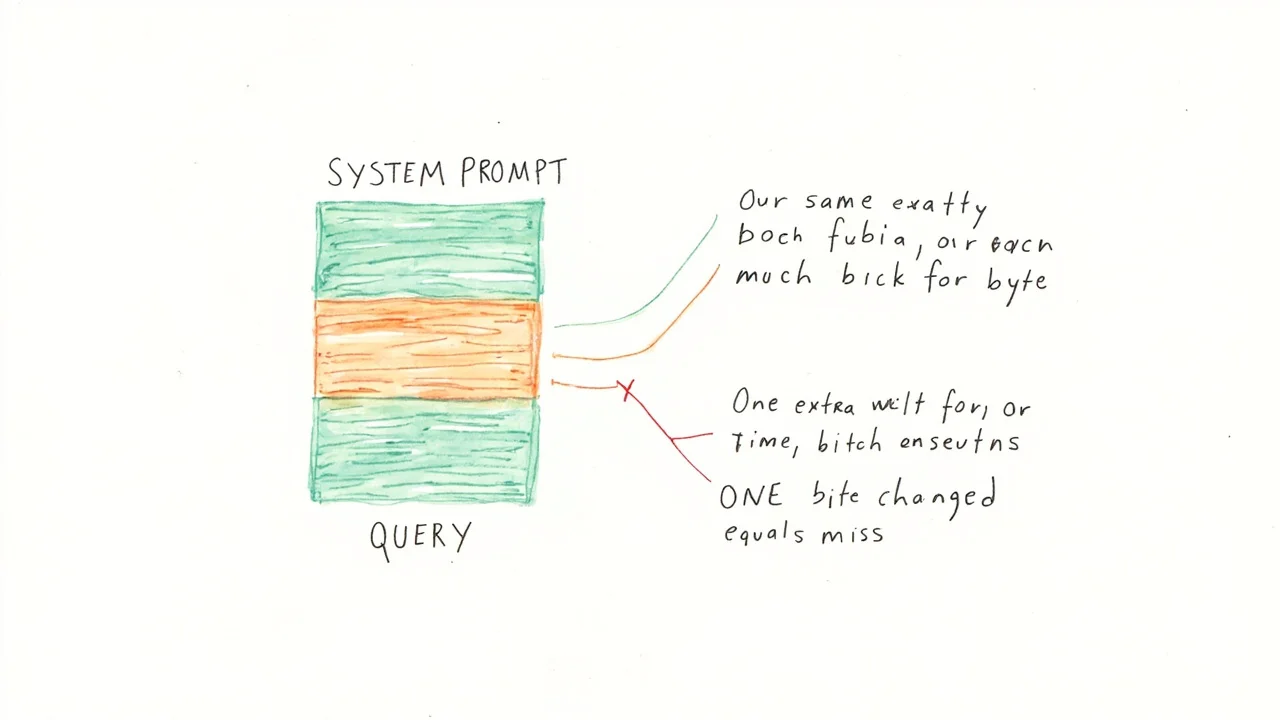 SYSTEM PROMPT
Our same exatty
boch fubia, oir each
much bick for byte
One extra welt for, or
Time, bitch enseutns
ONE bite changed
equals miss
QUERY